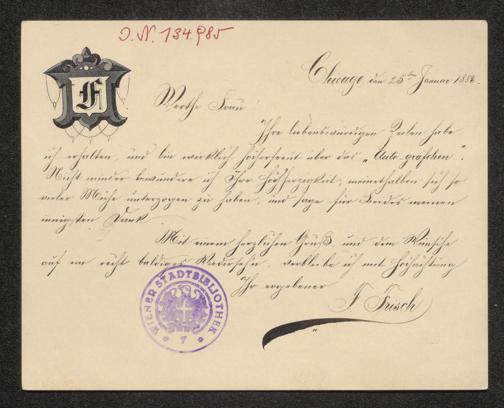 J. N. 134.985
F
Chicago den 25ten Januar 1882.
Werthe Frau!
Ihre liebenswürdigen Zeilen habe
ich erhalten, und bin wirklich höcherfreut über das "Auto-gräfchen".
Nicht minder bewundere ich Ihre Höchherzigkeit, meinethalben sich so
vieler Mühe unterzogen zu haben, und sage für Beides meinen
innigsten Dank.
Mit einem herzlichen Gruß und dem Wunsche
auf ein recht baldiges Wiedersehn, verbleibe ich mit Hochachtung
Ihr ergebener
F. Frisch
WIENER STADTBIBLIOTHEK
7